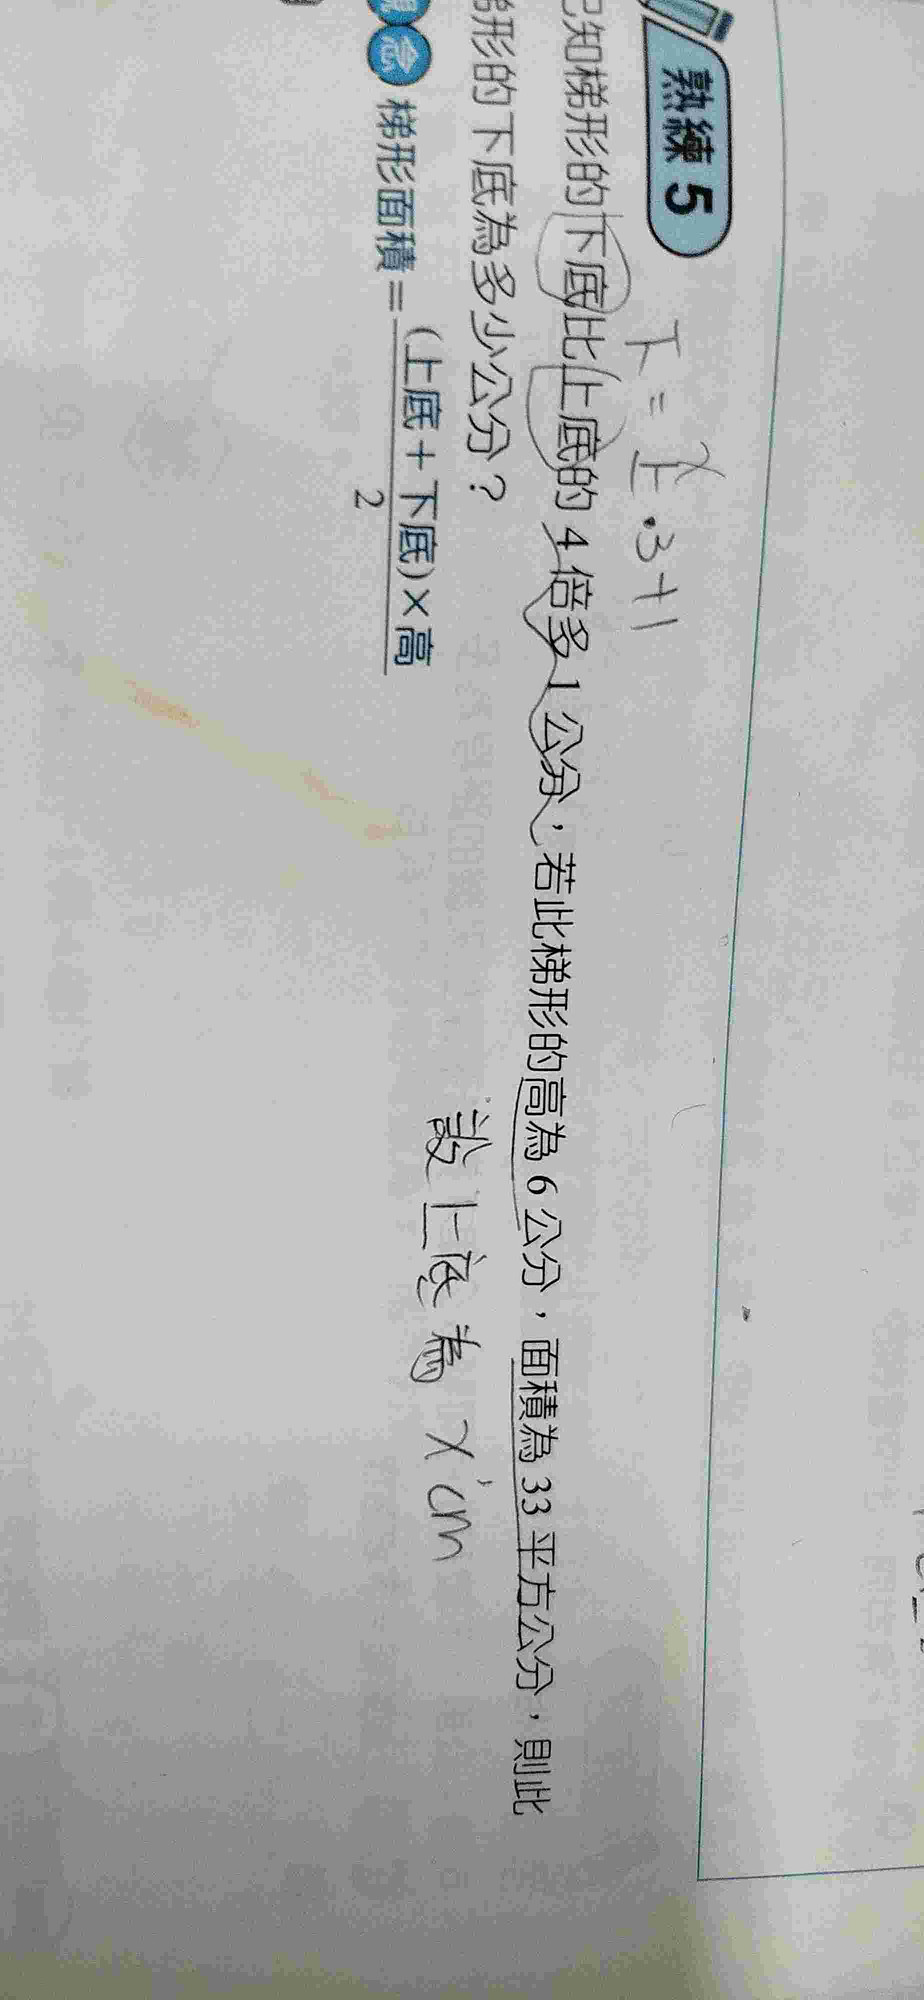 熟練 5
下 = 上 x · 3 + 1
已知梯形的下底比上底的 4 倍多 1 公分，若此梯形的高為 6 公分，面積為 33 平方公分，則此
梯形的下底為多少公分？
設上底為 x cm
觀念 梯形面積 = (上底 + 下底) × 高
2